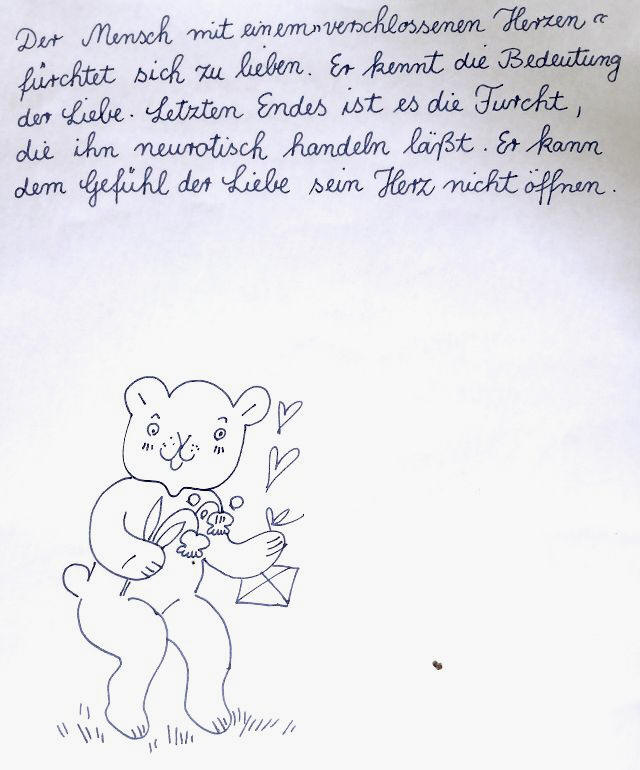 Der Mensch mit einem „verschlossenen Herzen“
fürchtet sich zu lieben. Er kennt die Bedeutung
der Liebe. Letzten Endes ist es die Furcht,
die ihn neurotisch handeln läßt. Er kann
dem Gefühl der Liebe sein Herz nicht öffnen.